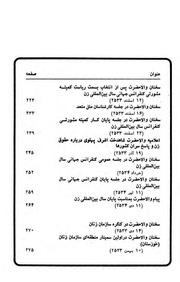 عنوان صفحه
سخنان والاحضرت پس از انتخاب بسمت ریاست کمیته
مشورتی کنفرانس جهانی سال بین‌المللی زن
(۱۲ اسفند ۲۵۳۳) ۲۲۴
سخنان والاحضرت در جلسه کارشناسان ملل متحد
(۱۴ اسفند ۲۵۳۳)
سخنان والاحضرت در جلسه پایان کار کمیته مشورتی
کنفرانس جهانی سال بین‌المللی زن
(۲۳ اسفند ۲۵۳۳)
اعلامیه والاحضرت شاهدخت اشرف پهلوی درباره حقوق
زن و پاسخ سران کشورها
سخنان والاحضرت در جلسه عمومی کنفرانس جهانی سال
بین‌المللی زن
۲۵۲
سخنان والاحضرت در جلسه پایان کنفرانس جهانی سال
بین‌المللی زن
۲۵۹
پیام والاحضرت بمناسبت پایان سال بین‌المللی زن
(۱۱ دی ۲۵۳۴) ۲۶۴
سخنان والاحضرت در کنگره سازمان زنان
سخنان والاحضرت در اولین سمینار منطقه‌ای سازمان زنان
(خوزستان)
(۱۰ بهمن ۲۵۳۳) ۲۷۵